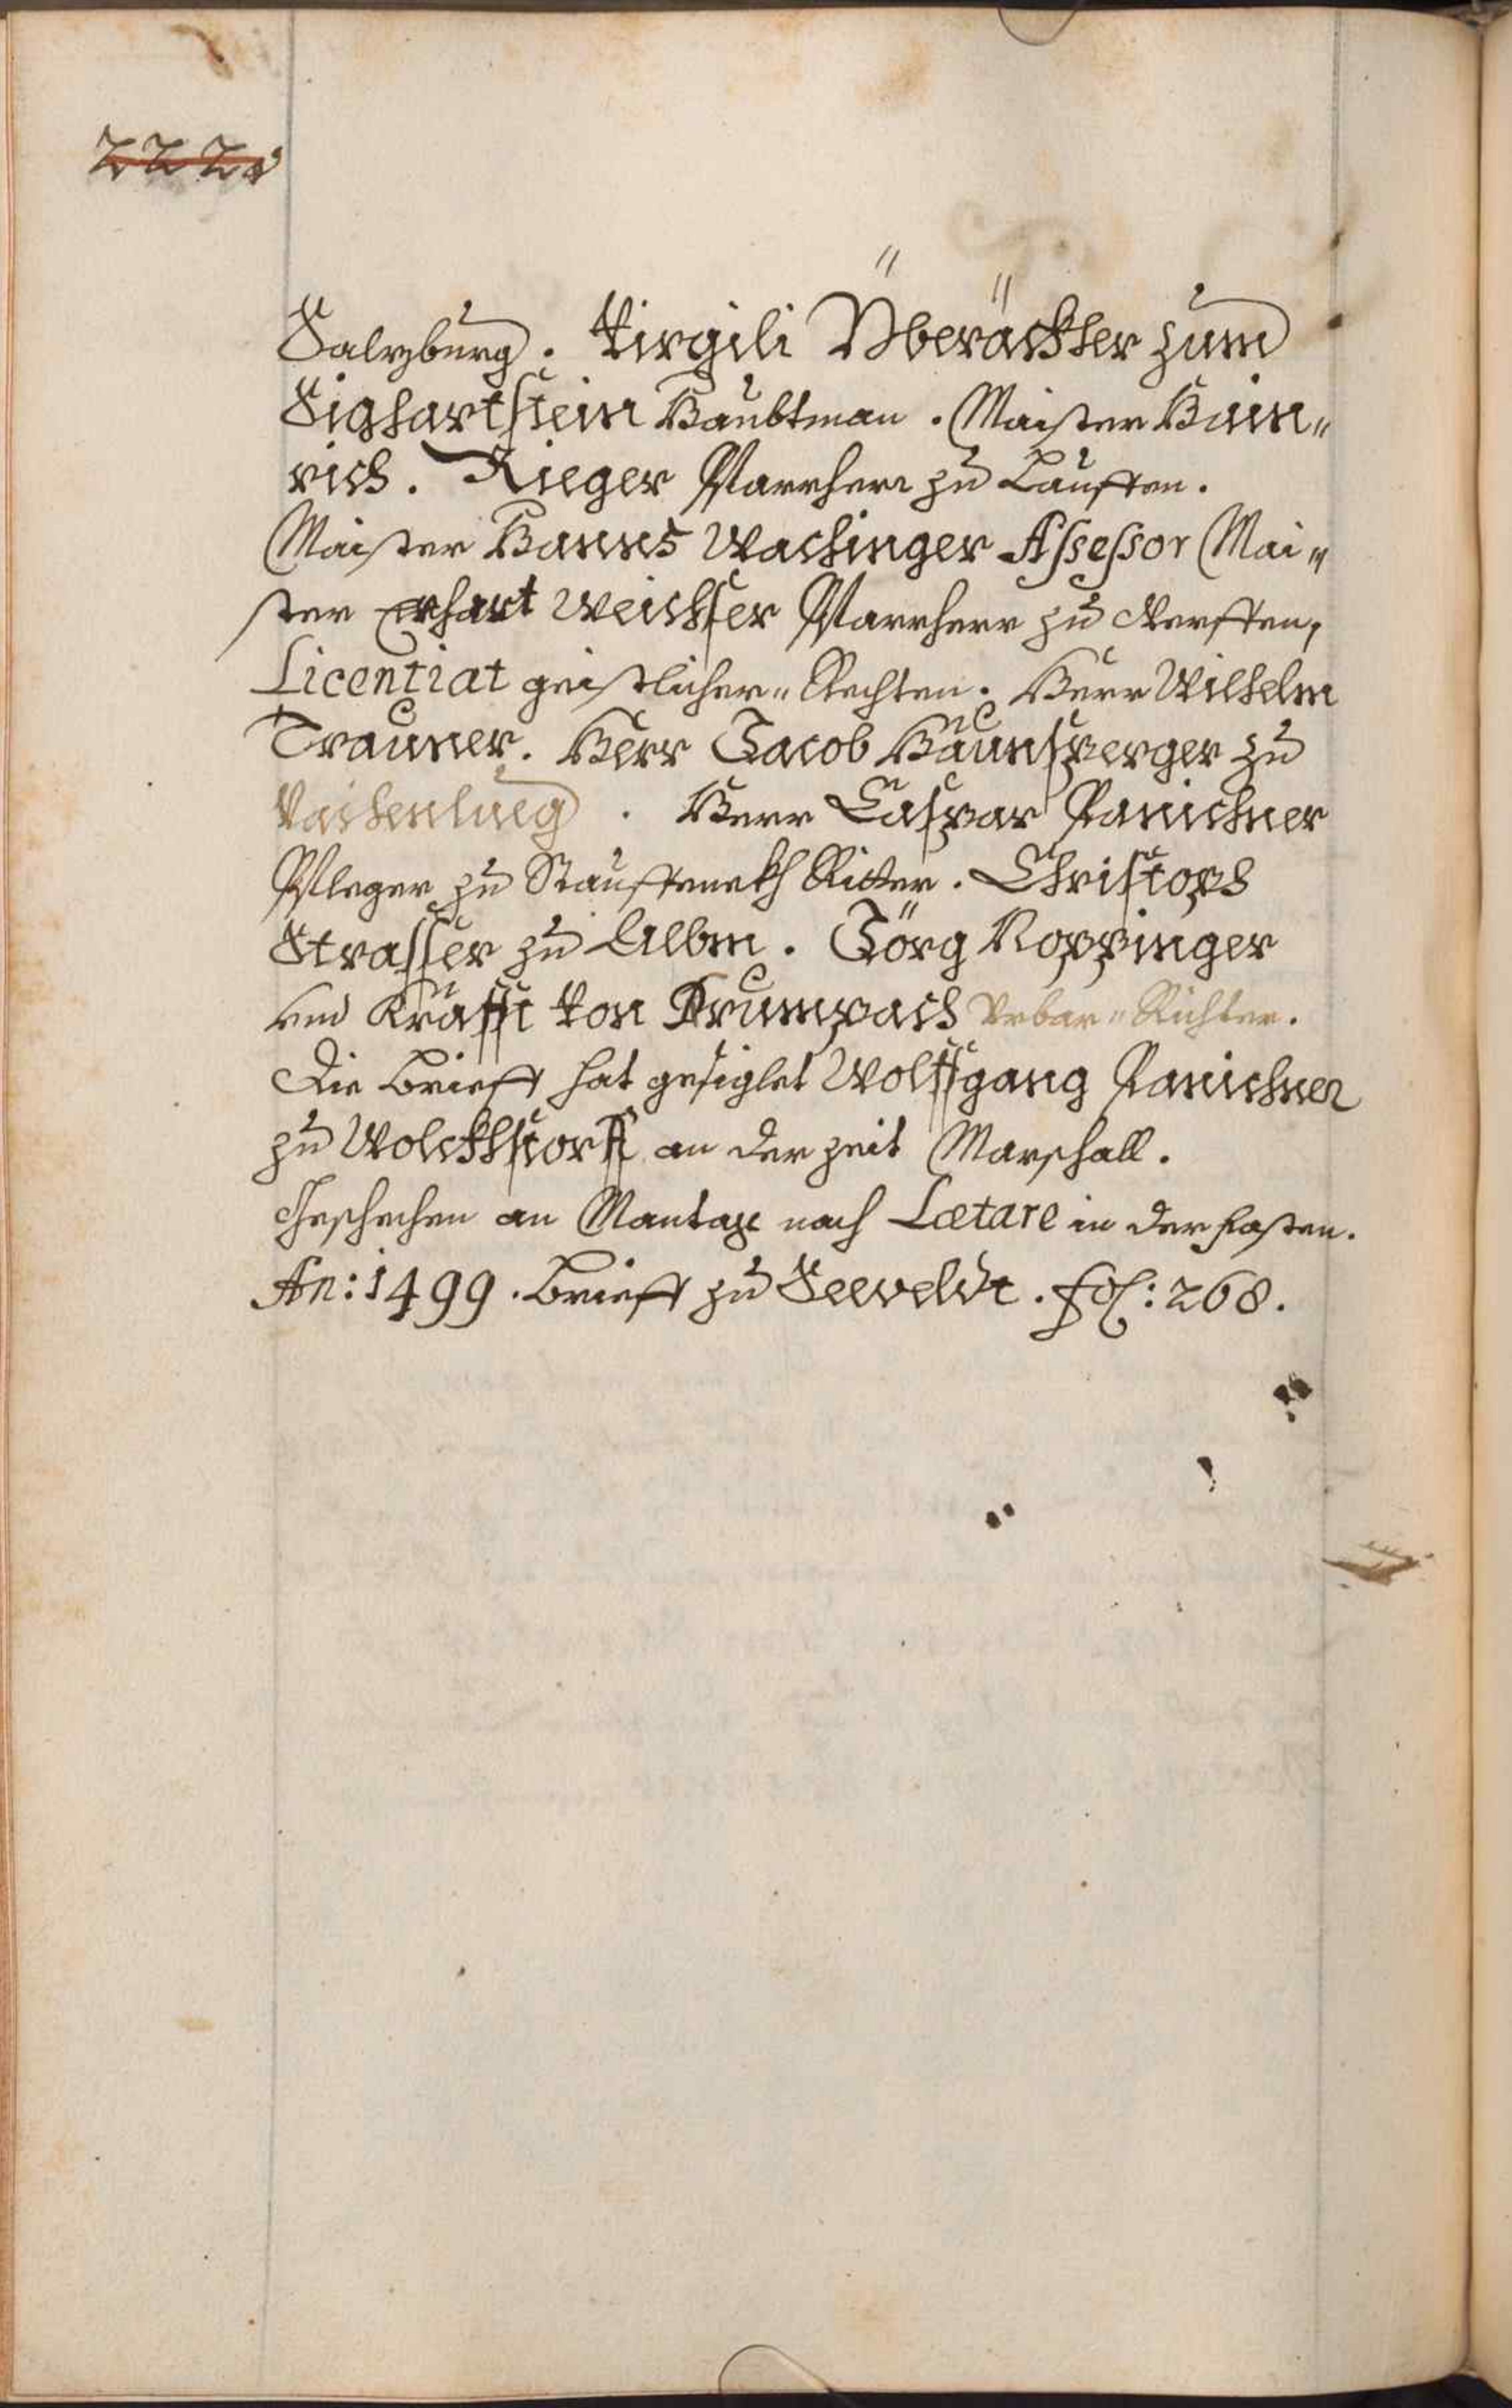 222v
Salzburg. Virgili Überäckher zum
Sighartstein Haubtman. Maister Hain„
rich. Rieger Pfarrherr zu Lauffen.
Maister Hanns Wachinger Assessor Mai„
ster Erhart Weichser Pfarrherr zu Werffen,
Licentiat geistlicher„ Rechten. Herr Wilhelm
Trauner. Herr Jacob Haunsperger zu
Vachenlueg. Herr Caspar Panichner
Pfleger zu Stauffenekh Ritter. Christoph
Strasser zu Albm. Jörg Noppinger
vnd Krafft von Trumpach Vrbar„ Richter.
Die brieff hat gesiglet Wolffgang Panichner
zu Wolckhstorff an der zeit Marschall.
Geschechen an Mantag nach Lætare in der fasten.
An: 1499. brieff zu Seeveldt. fol: 268.